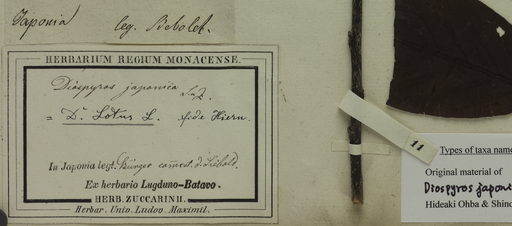 Japonia
leg. Siebold.
HERBARIUM REGIUM MONACENSE.
Diospyros japonica S. & Z.
= D. Lotus L. fide Hiern.
In Japonia legt. Bürger comed. d. Siebold.
Ex herbario Lugduno-Batavo.
HERB. ZUCCARINII.
Herbar. Univ. Ludov. Maximil.
11
Types of taxa name
Original material of
Diospyros japoni
Hideaki Ohba & Shino